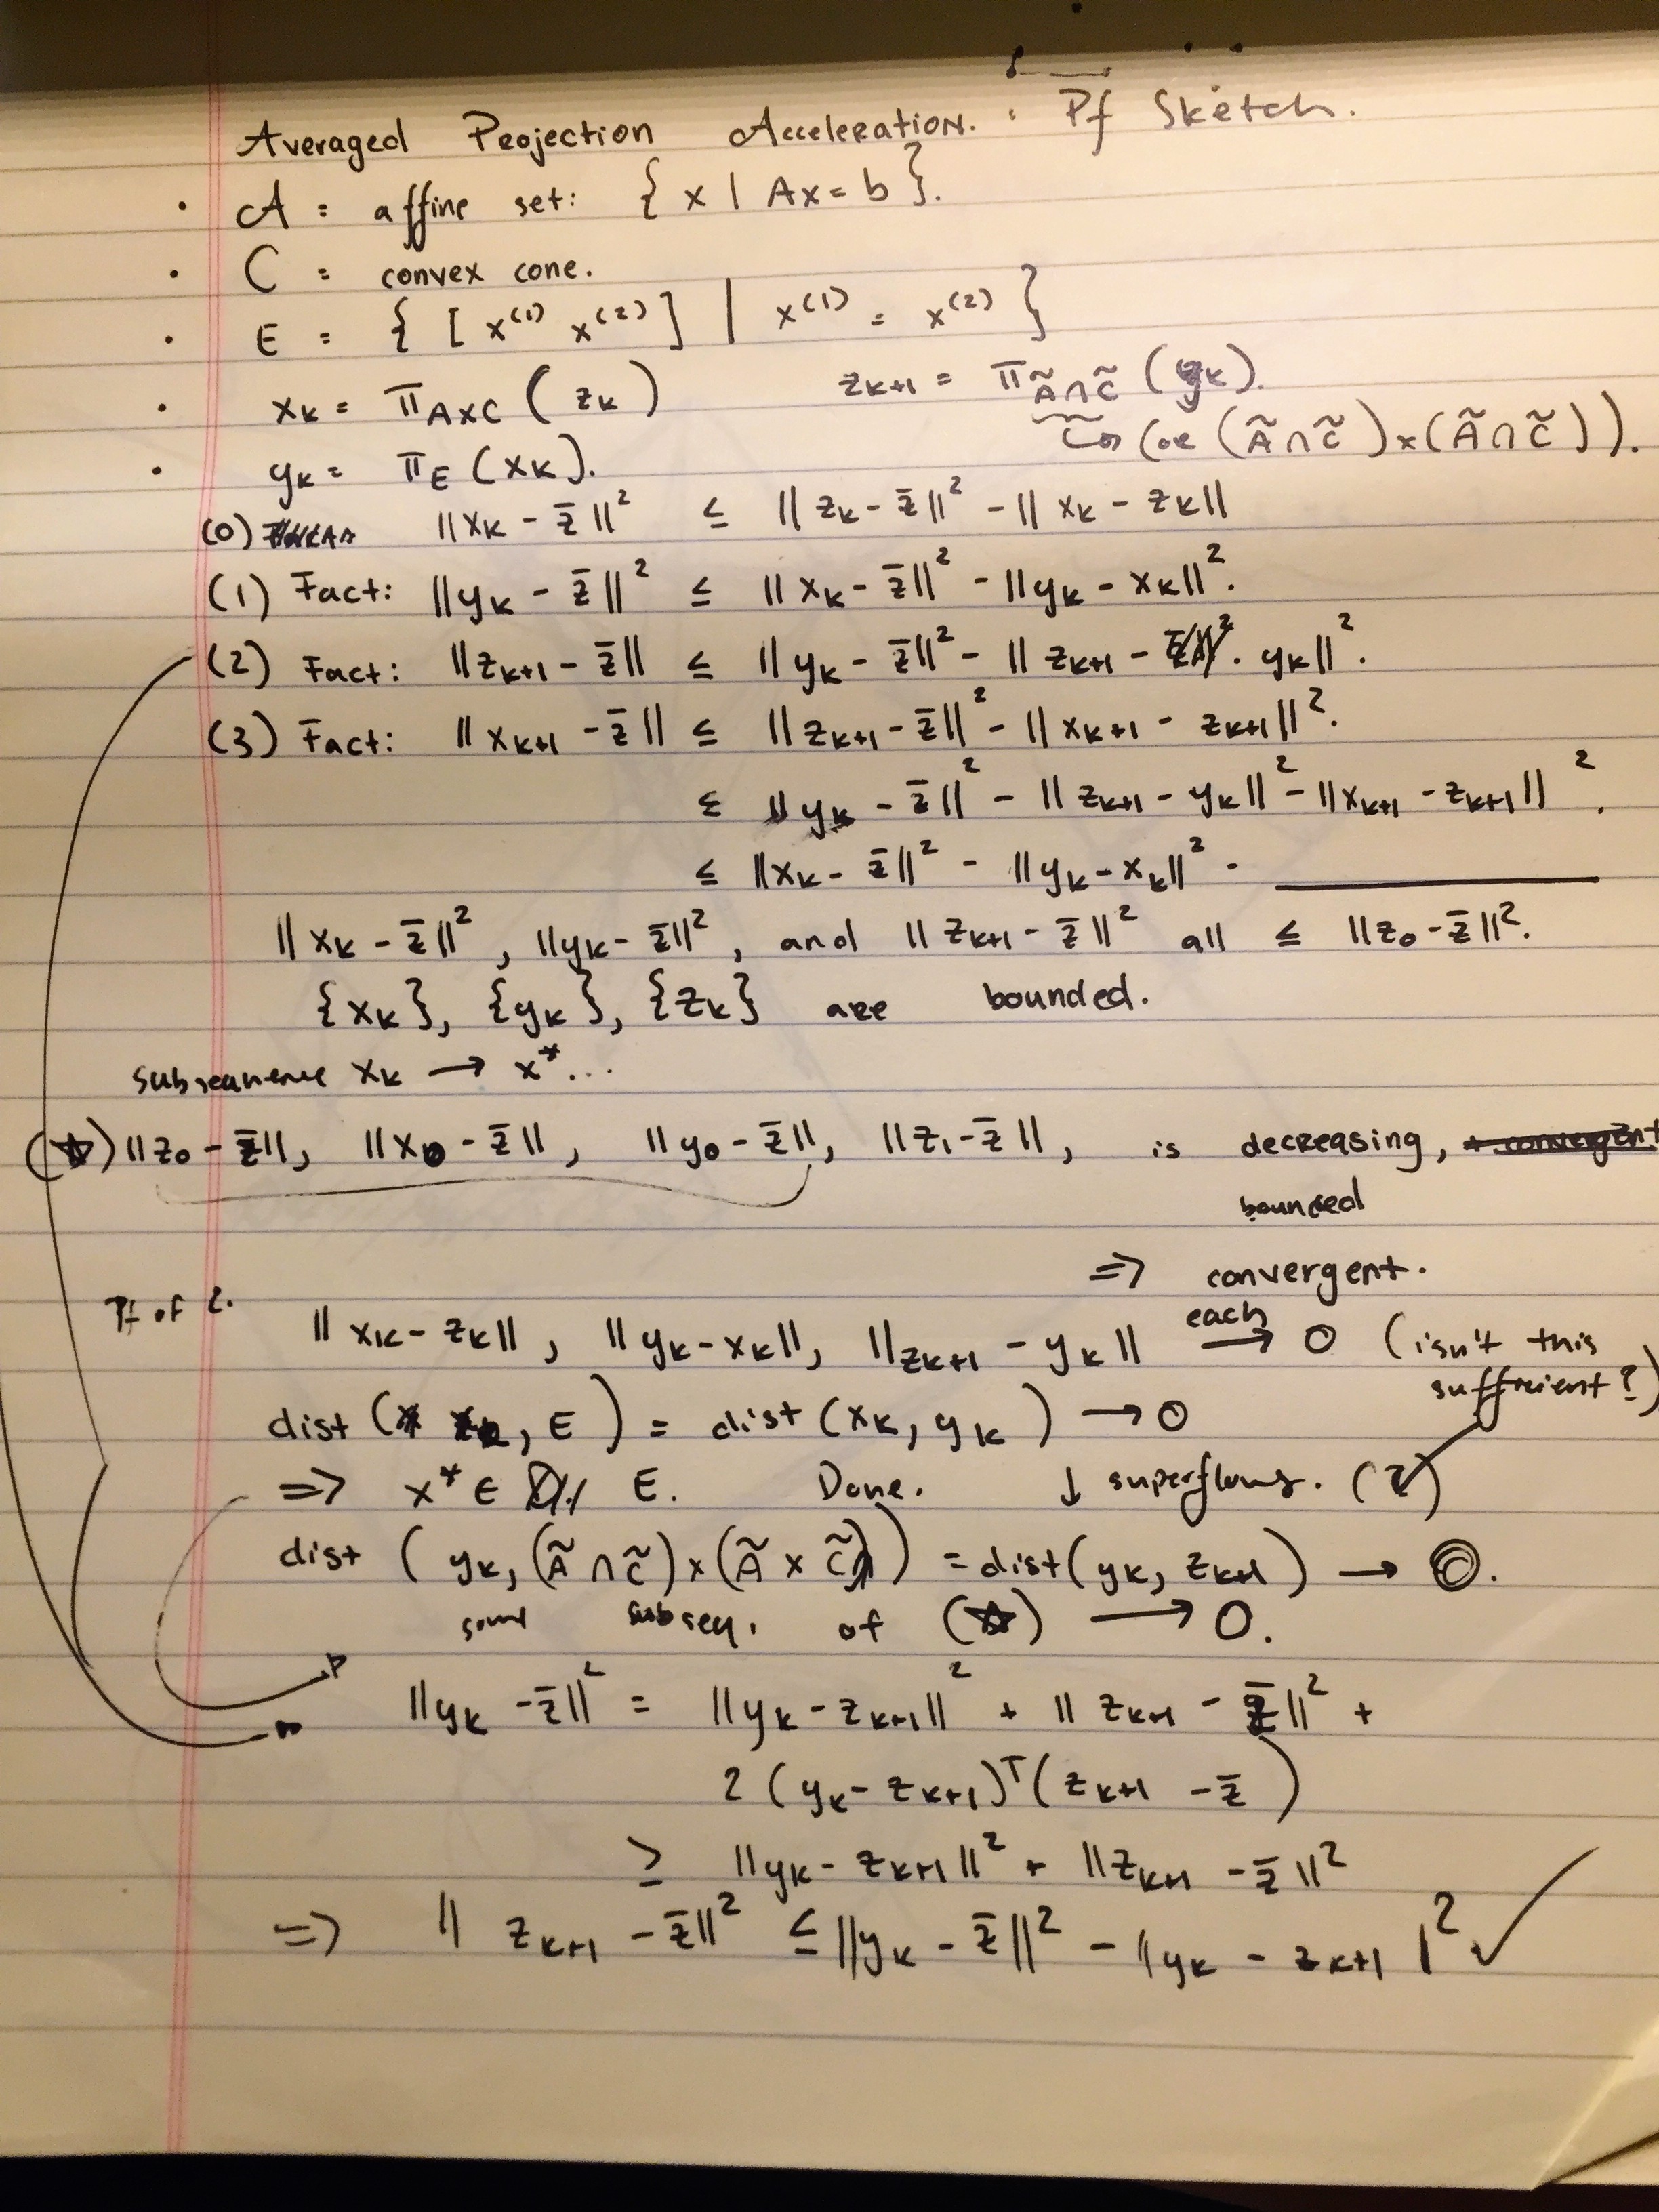 Averaged Projection Acceleration. : Pf Sketch.
• A = affine set: { x | Ax = b }.
• C = convex cone.
• E = { [ x^(1) x^(2) ] | x^(1) = x^(2) }
• x_k = π_{A×C} ( z_k )    z_{k+1} = π_{Ã∩C̃} (y_k).
↪ (or (Ã∩C̃)×(Ã∩C̃)).
• y_k = π_E (x_k).
(0) ||x_k - z̄||² ≤ ||z_k - z̄||² - ||x_k - z_k||
(1) Fact: ||y_k - z̄||² ≤ ||x_k - z̄||² - ||y_k - x_k||².
(2) Fact: ||z_{k+1} - z̄|| ≤ ||y_k - z̄||² - ||z_{k+1} - y_k||².
(3) Fact: ||x_{k+1} - z̄|| ≤ ||z_{k+1} - z̄||² - ||x_{k+1} - z_{k+1}||².
≤ ||y_k - z̄||² - ||z_{k+1} - y_k||² - ||x_{k+1} - z_{k+1}||².
≤ ||x_k - z̄||² - ||y_k - x_k||² - ________
||x_k - z̄||², ||y_k - z̄||², and ||z_{k+1} - z̄||² all ≤ ||z_0 - z̄||².
{x_k}, {y_k}, {z_k} are bounded.
subsequence x_k → x*...
(☆) ||z_0 - z̄||, ||x_0 - z̄||, ||y_0 - z̄||, ||z_1 - z̄||, is decreasing, convergent
bounded
⇒ convergent.
Pf of 2.
||x_k - z_k||, ||y_k - x_k||, ||z_{k+1} - y_k|| each → 0 (isn't this
sufficient?)
dist (x_k, E) = dist (x_k, y_k) → 0
⇒ x* ∈ E. Done. ↓ superflows. (2)
dist ( y_k, (Ã∩C̃)×(Ã×C̃)) = dist(y_k, z_{k+1}) → 0.
some subseq. of (☆) → 0.
||y_k - z̄||² = ||y_k - z_{k+1}||² + ||z_{k+1} - z̄||² +
2 (y_k - z_{k+1})ᵀ(z_{k+1} - z̄)
≥ ||y_k - z_{k+1}||² + ||z_{k+1} - z̄||²
⇒ ||z_{k+1} - z̄||² ≤ ||y_k - z̄||² - ||y_k - z_{k+1}|² ✓